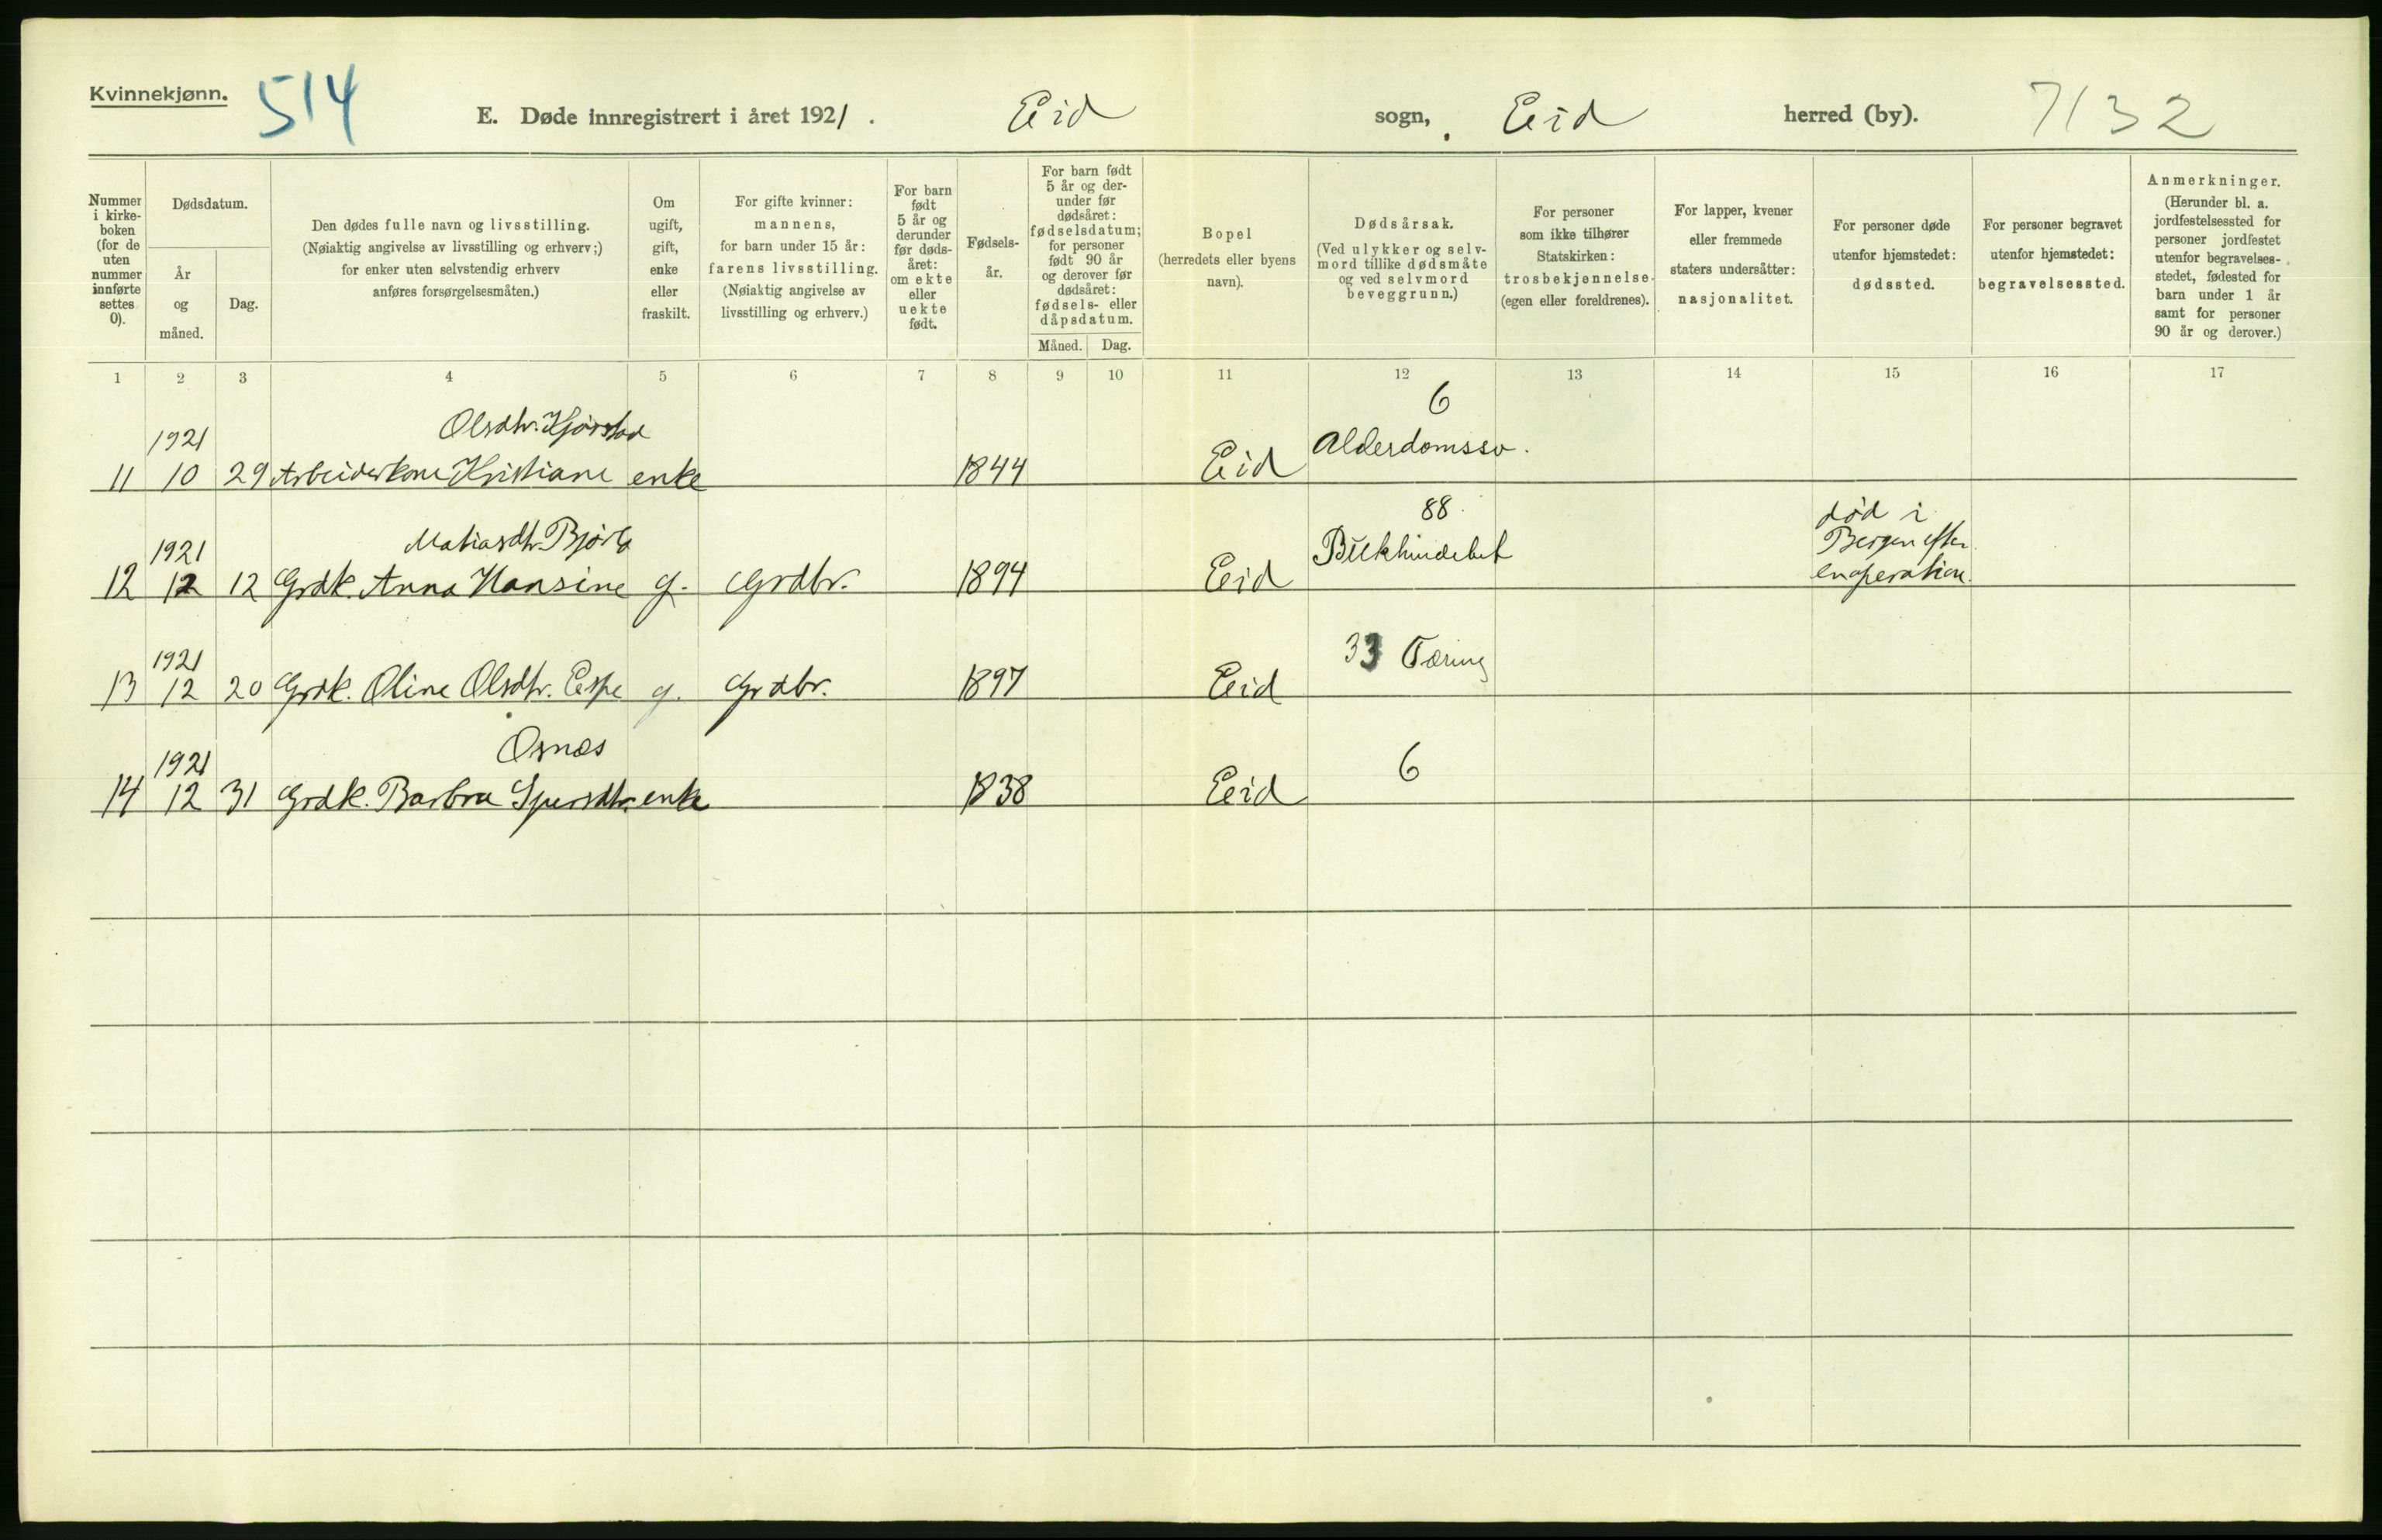 Kvinnekjønn.
514
E. Døde innregistrert i året 1921. Eid sogn, Eid herred (by). 7132
Nummer i kirke- boken (for de uten nummer innførte settes 0).
Dødsdatum.
År og måned.
Dag.
Den dødes fulle navn og livsstilling.
(Nøiaktig angivelse av livsstilling og erhverv;)
for enker uten selvstendig erhverv
anføres forsørgelsesmåten.)
Om ugift, gift, enke eller fraskilt.
For gifte kvinner:
mannens,
for barn under 15 år:
farens livsstilling.
(Nøiaktig angivelse av
livsstilling og erhverv.)
For barn født 5 år og derunder før døds- året: om ekte eller uekte født.
Fødsels- år.
For barn født 5 år og der- under før dødsåret: fødselsdatum; for personer født 90 år og derover før dødsåret: fødsels- eller dåpsdatum.
Måned. Dag.
Bopel
(herredets eller byens
navn).
Dødsårsak.
(Ved ulykker og selv-
mord tillike dødsmåte
og ved selvmord
beveggrunn.)
For personer
som ikke tilhører
Statskirken:
trosbekjennelse
(egen eller foreldrenes).
For lapper, kvener
eller fremmede
staters undersåtter:
nasjonalitet.
For personer døde
utenfor hjemstedet:
dødssted.
For personer begravet
utenfor hjemstedet:
begravelsessted.
Anmerkninger.
(Herunder bl. a.
jordfestelsessted for
personer jordfestet
utenfor begravelses-
stedet, fødested for
barn under 1 år
samt for personer
90 år og derover.)
1 2 3 4 5 6 7 8 9 10 11 12 13 14 15 16 17
6
1921 Olsdtr. Alderdomssv.
11 10 29 Arbeiderkone Kristiane enke 1844 Eid
88
1921 Matiasdtr.
død i
Bergen efter
en operation.
12 12 12 Grdk. Anna Hansine g. Grdbr. 1894 Eid
1921 33 Tæring
13 12 20 Grdk. Oline Olsdtr. Espe g. Grdbr. 1897 Eid
1921 Osnes 6
14 12 31 Grdk. Barbra enke 1838 Eid